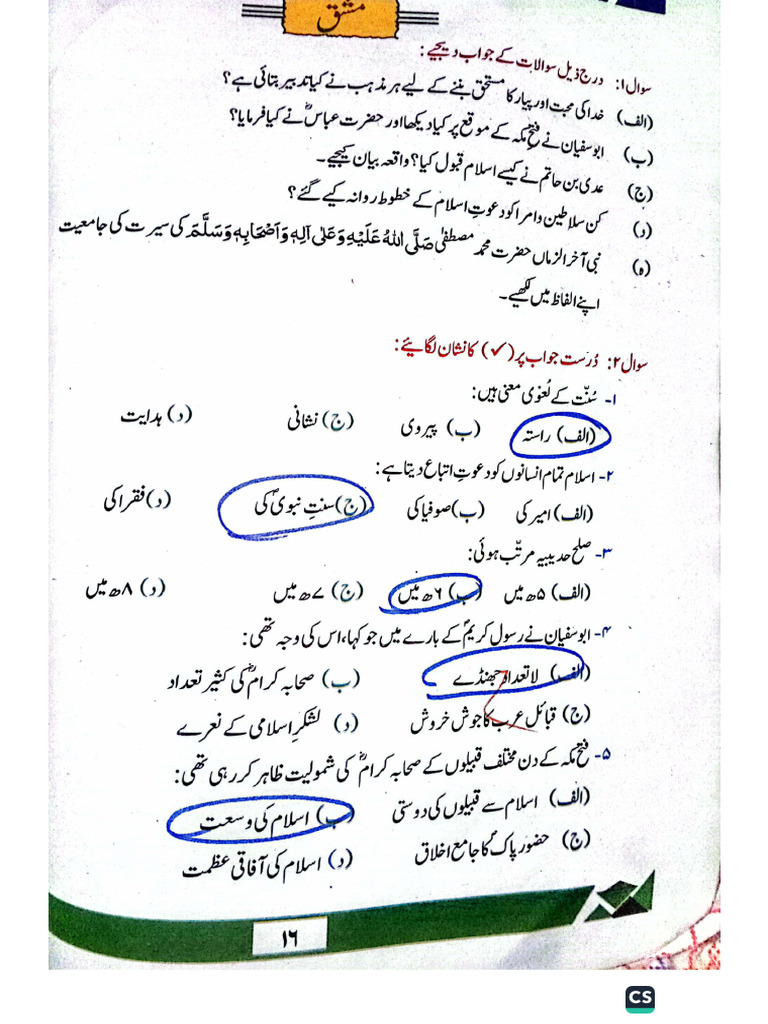 مشق
سوال ۱: درج ذیل سوالات کے جواب دیجیے:
(الف) خدا کی محبت اور پیار کا مستحق بننے کے لیے ہر مذہب نے کیا تدبیر بتائی ہے؟
(ب) ابو سفیان نے فتح مکہ کے موقع پر کیا دیکھا اور حضرت عباسؓ نے کیا فرمایا؟
(ج) عدی بن حاتم نے کیسے اسلام قبول کیا؟ واقعہ بیان کیجیے۔
(د) کن سلاطین و امرا کو دعوتِ اسلام کے خطوط روانہ کیے گئے؟
(ہ) نبی آخر الزماں حضرت محمد مصطفیٰ صَلَّی اللہُ عَلَیْہِ وَعَلٰی آلِہٖ وَاَصْحَابِہٖ وَسَلَّمَ کی سیرت کی جامعیت
اپنے الفاظ میں لکھیے۔
سوال ۲: دُرست جواب پر (✓) کا نشان لگائیے:
۱- سُنّت کے لُغوی معنی ہیں:
(الف) راستہ (ب) پیروی (ج) نشانی (د) ہدایت
۲- اسلام تمام انسانوں کو دعوتِ اتباع دیتا ہے:
(الف) امیر کی (ب) صوفیا کی (ج) سنتِ نبویؐ کی (د) فقرا کی
۳- صلح حدیبیہ مرتّب ہوئی:
(الف) ۵ھ میں (ب) ۶ھ میں (ج) ۷ھ میں (د) ۸ھ میں
۴- ابو سفیان نے رسول کریمؐ کے بارے میں جو کہا، اس کی وجہ تھی:
(الف) لا تعداد جھنڈے (ب) صحابہ کرامؓ کی کثیر تعداد
(ج) قبائل عرب کا جوش خروش (د) لشکرِ اسلامی کے نعرے
۵- فتح مکہ کے دن مختلف قبیلوں کے صحابہ کرامؓ کی شمولیت ظاہر کر رہی تھی:
(الف) اسلام سے قبیلوں کی دوستی (ب) اسلام کی وسعت
(ج) حضور پاکؐ کا جامع اخلاق (د) اسلام کی آفاقی عظمت
۱۶
CS